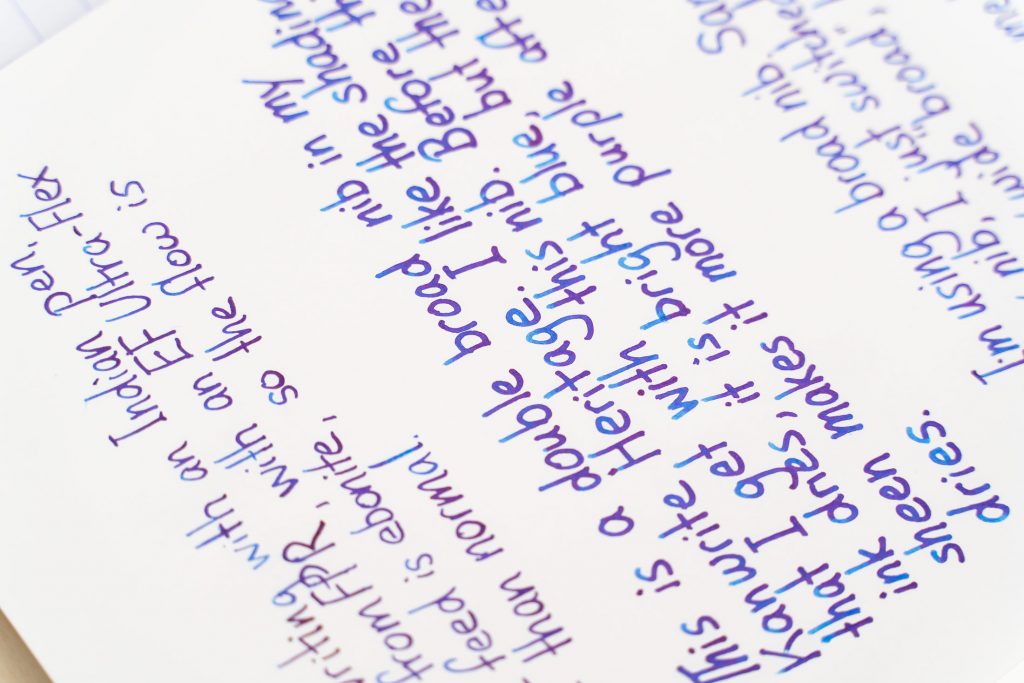 writing with an Indian pen,
from FPR, with an EF Ultra-Flex
feed is ebonite, so the flow is
than normal.
This is a double broad nib in my
Kanwrite Heritage I like the shading
that I get with this nib. Before
ink dries, it is bright blue, but the
sheen makes it more purple
dries.
I'm using a broad nib
nib, I just switched
wide broad,